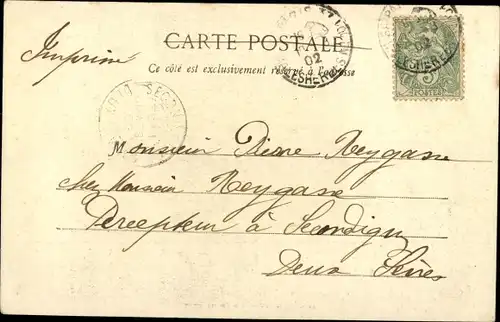 Imprimé
CARTE POSTALE
Ce côté est exclusivement réservé à l'adresse
02
5
POSTES
Monsieur Pierre Reygasse
chez Monsieur Reygasse
Percepteur à Secondigny
Deux Sèvres